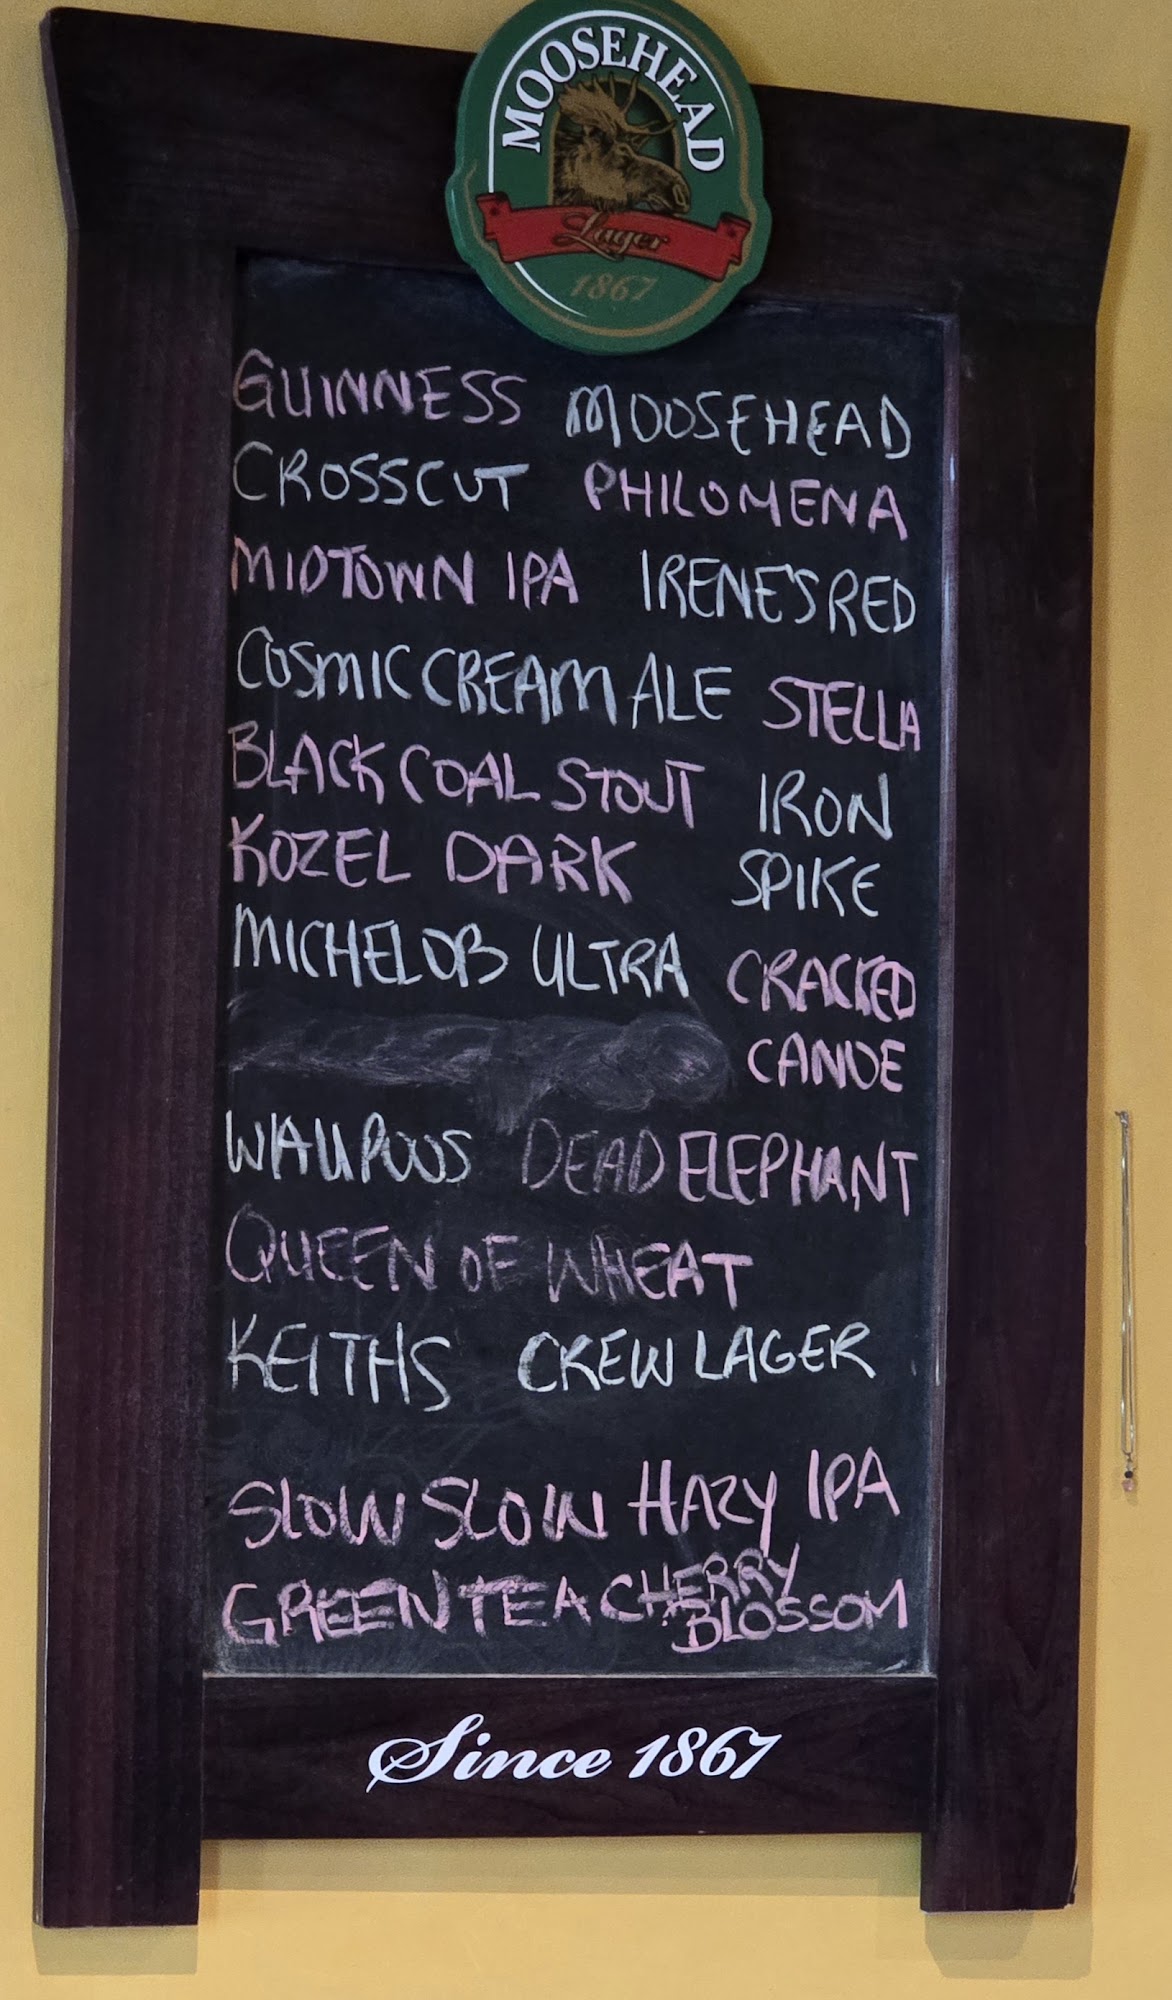 MOOSEHEAD
Lager
1867
GUINNESS MOOSEHEAD
CROSSCUT PHILOMENA
MIDTOWN IPA IRENE'S RED
COSMIC CREAM ALE STELLA
BLACK COAL STOUT IRON
KOZEL DARK SPIKE
MICHELOB ULTRA CRACKED
CANOE
WAUPOOS DEAD ELEPHANT
QUEEN OF WHEAT
KEITHS CREW LAGER
SLOW SLOW HAZY IPA
GREEN TEA CHERRY
BLOSSOM
Since 1867